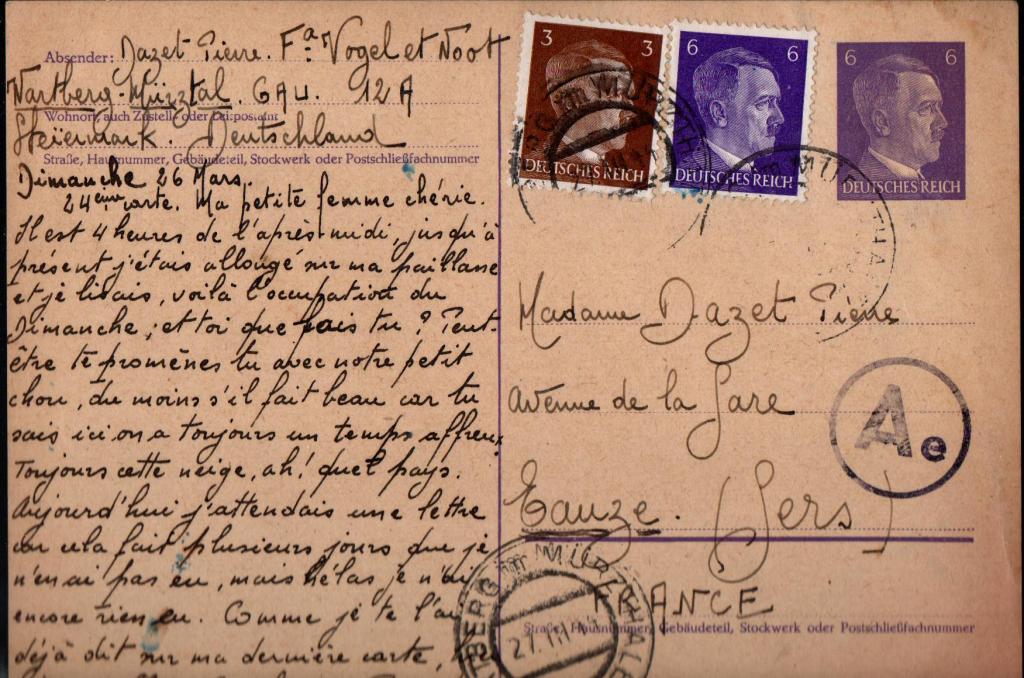 Absender: Dazet Pierre. Fa Vogel et Noot
Wartberg-Mürztal. GAU. 12A
Wohnort, auch Zustell- oder Leitpostamt
Steiermark. Deutschland
Straße, Hausnummer, Gebäudeteil, Stockwerk oder Postschließfachnummer
Dimanche 26 Mars.
24ème carte. Ma petite femme chérie.
Il est 4 heures de l'après-midi, jusqu'à
présent j'étais allongé sur ma paillasse
et je lisais, voilà l'occupation du
Dimanche, et toi que fais tu ? Peut-
être te promènes tu avec notre petit
chou, du moins s'il fait beau car tu
sais ici on a toujours un temps affreux
Toujours cette neige, ah! quel pays.
Aujourd'hui j'attendais une lettre
car cela fait plusieurs jours que je
n'en ai pas eu, mais hélas je n'ai
encore rien eu. Comme je te l'ai
déjà dit sur ma dernière carte,
3 3
DEUTSCHES REICH
6 6
DEUTSCHES REICH
6 6
DEUTSCHES REICH
Madame Dazet Pierre
Avenue de la Gare
Eauze. (Gers)
FRANCE
Straße, Hausnummer, Gebäudeteil, Stockwerk oder Postschließfachnummer
Ae
WARTBERG im MÜRZTHALE
27.III.